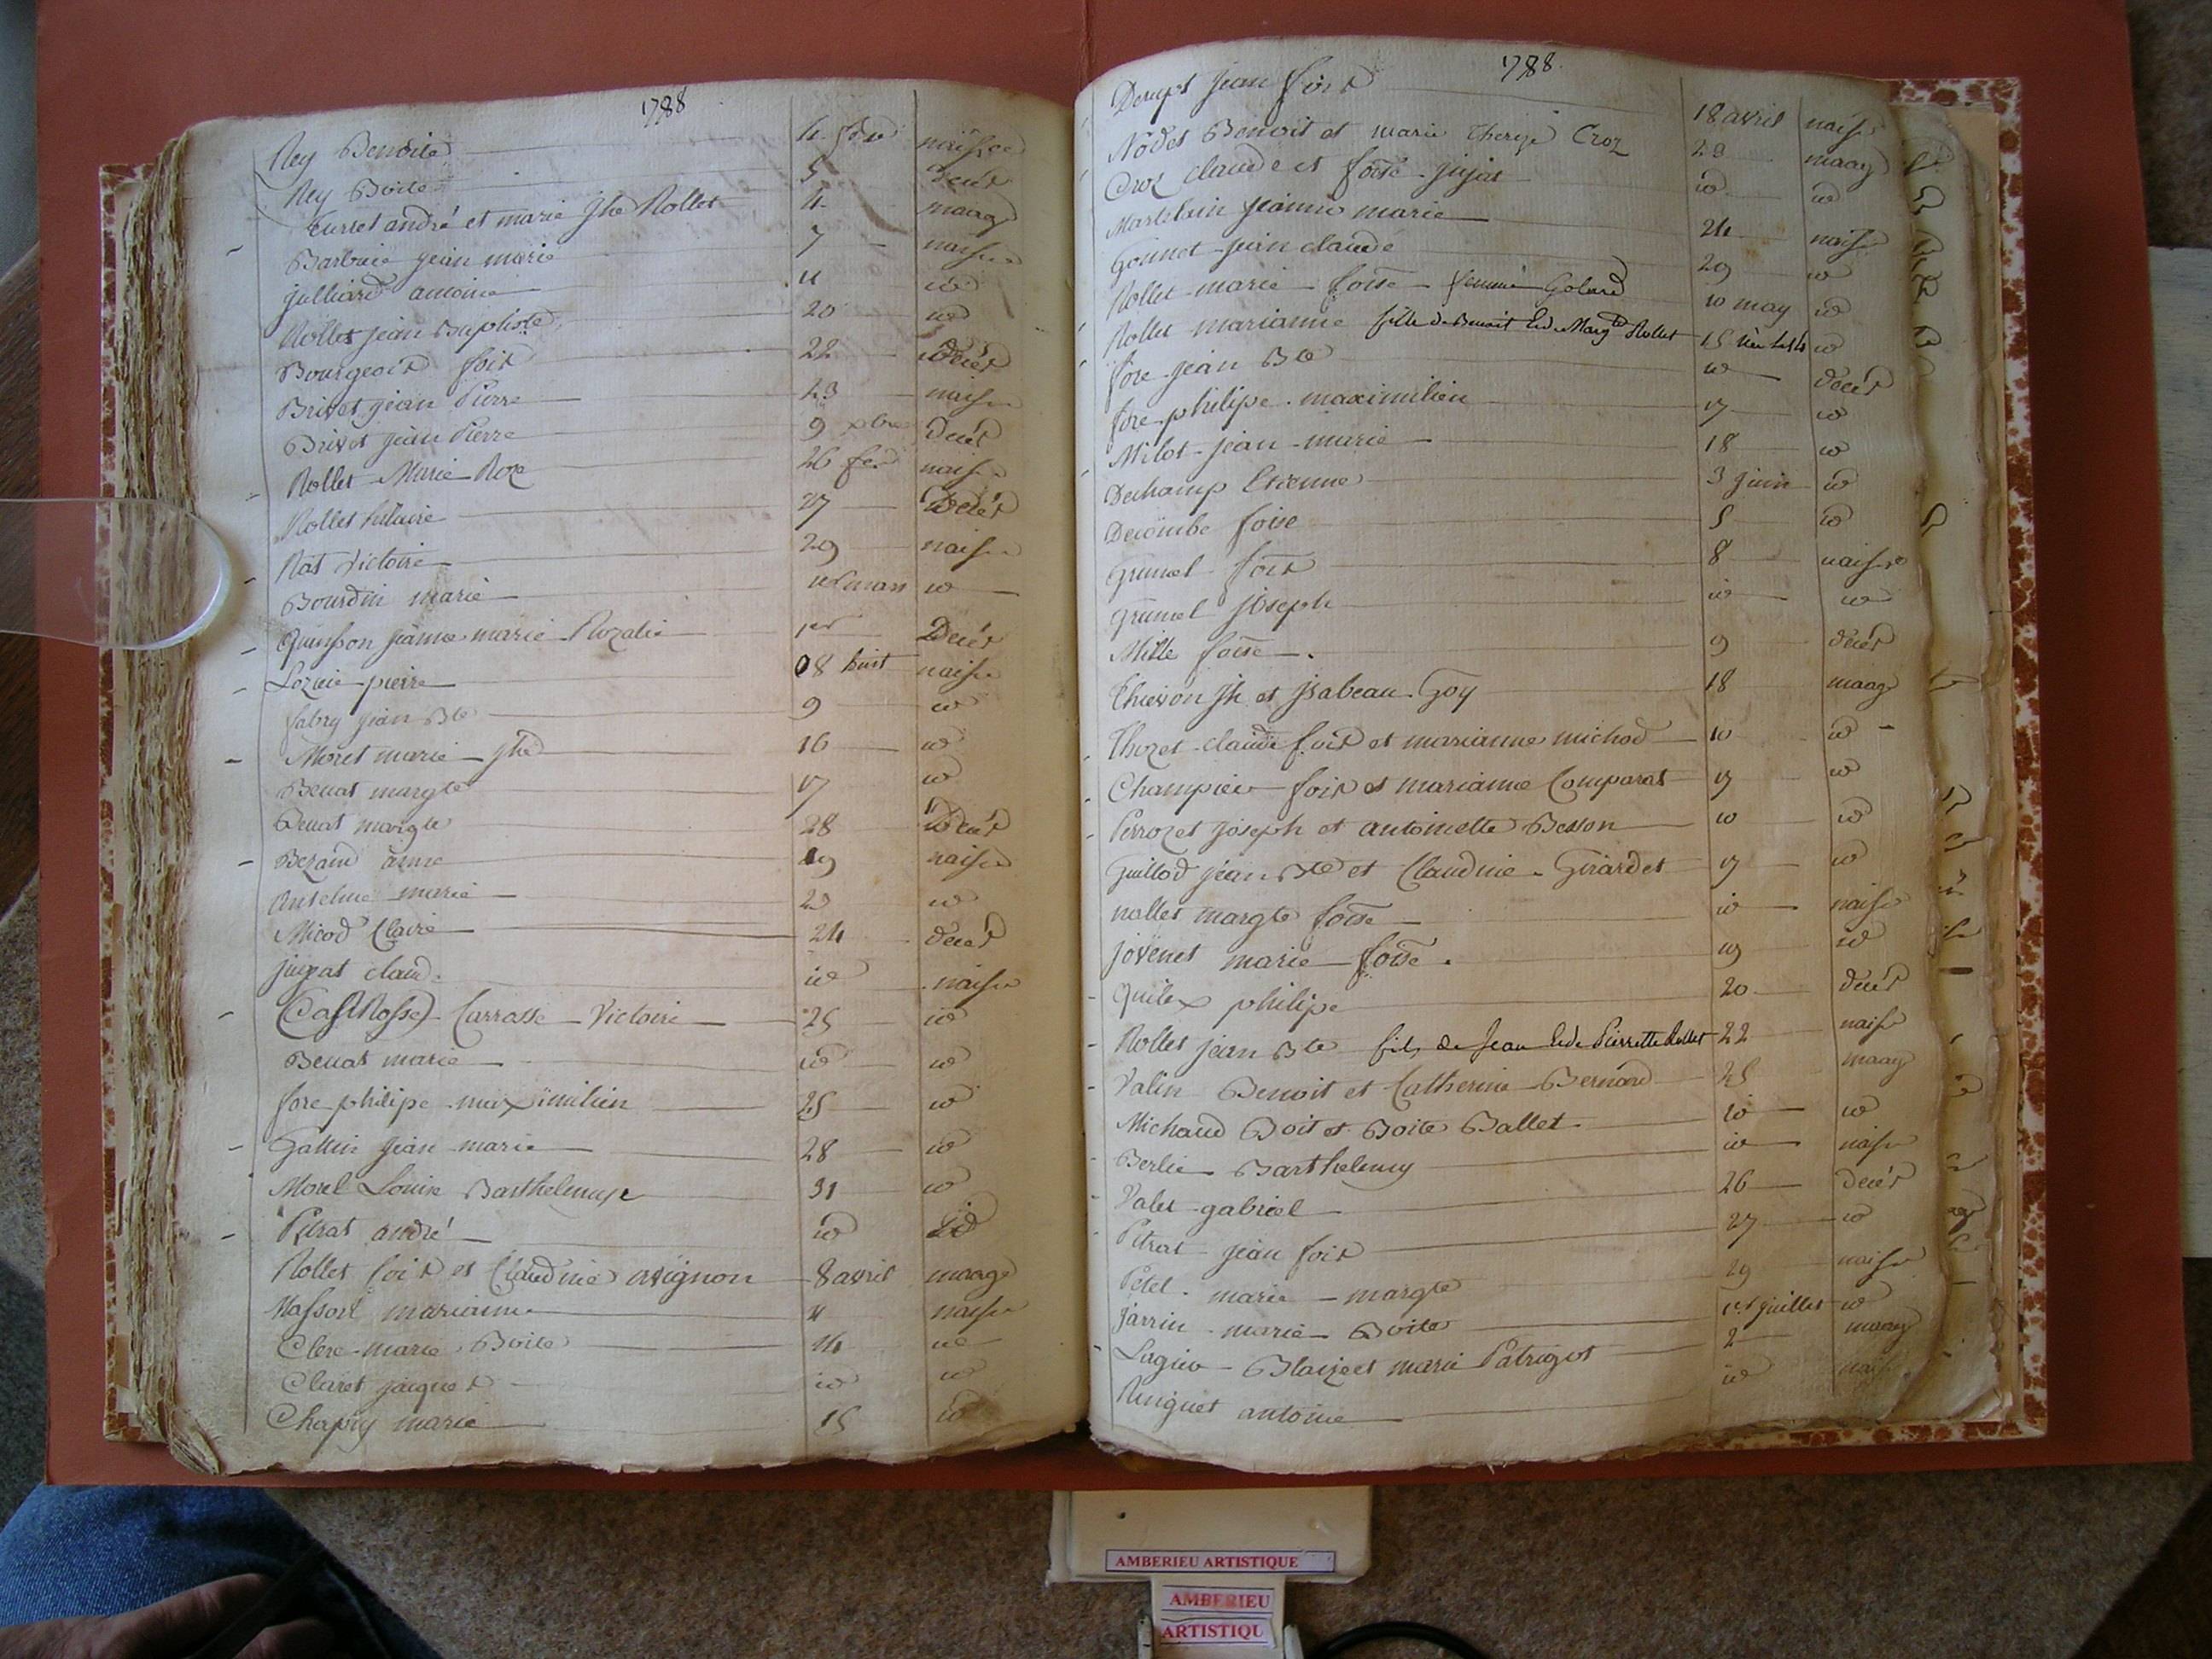 1788
Rey Benoite 4 naissce
Rey Boite 5 Decés
Curret andré et marie Jhe Rollet 4 maage
Barbaie jean marie 7 naisce
Julliard antoine 11 id
Rollet jean Baptiste 20 id
Bourgeois fois 22 Decés
Brivet jean Pierre 23 naisce
Brivet jean Pierre 9 Decés
Rollet Marie Roze 26 naisce
Rollet hilaire 27 Decés
Rat Victoire 29 naisce
Bourdin marie mars id
Quinson jeanne marie Rozalie 1er Decés
Lozier pierre 8 huit naisce
fabry jean Bte 9 id
Moret marie Jhe 16 id
Beuat margte 17 id
Beuat margte 28 Decés
Bezaud anne 19 naisce
Anselme marie 23 id
Micod Claire 24 decés
jujeat claud. id naisce
Carrasse Victoire 25 id
Beuat marie id id
fore philipe maximilien 25 id
Gallin jean marie 28 id
Morel Louise Barthelemye 31 id
Pitrat andré id id
Rollet fois et Claudine avignon 8 avril maage
Massort marianne 11 naisce
Clerc marie Boite 14 id
Claret jaques id id
Chapuy marie 15 id
1788.
jean fois 18 avril naisce
Nodet Benoit et marie Therese Croz 28 maage
Croz claude et foise jujat id id
Martelain jeanne marie 24 naisce
Gonnet jean claude 29 id
Rollet marie foise femme Golard 10 may id
Rollet marianne fille de Benoit & de Margte Rollet 15 id
fore jean Bte id decés
fore philipe maximilien 17 id
Milot jean marie 18 id
Dechamp Etienne 3 juin id
Decombe foise 5 id
Grumel fois 8 naisce
Grumel joseph id id
Mille foise 9 decés
Thievon Jh et jsabeau Goy 18 maage
Thozet claude fois et marianne michod 10 id
Champier fois et marianne Comparat 17 id
Perrozet joseph et antoinette Besson id id
Guillod jean Bte et Claudine Girardet 17 id
nallet margte foise id naisce
jovenet marie foise. 19 id
Quilex philipe 20 decés
Rollet jean Bte fils de Jean & de Pierrette Rollet 22 naisce
Valin Benoit et Catherine Bernard 25 maage
Michaud Boit et Boite Ballet id id
Berlie Barthelemy id naisce
Valet gabriel 26 decés
Pitrat jean fois 27 id
Petel marie margte 29 naisce
Jarrin marie Boite 1er juillet id
Lagier Blaize et marie Patrigot 2 maage
Ringuet antoine id
AMBERIEU ARTISTIQUE
AMBERIEU
ARTISTIQU